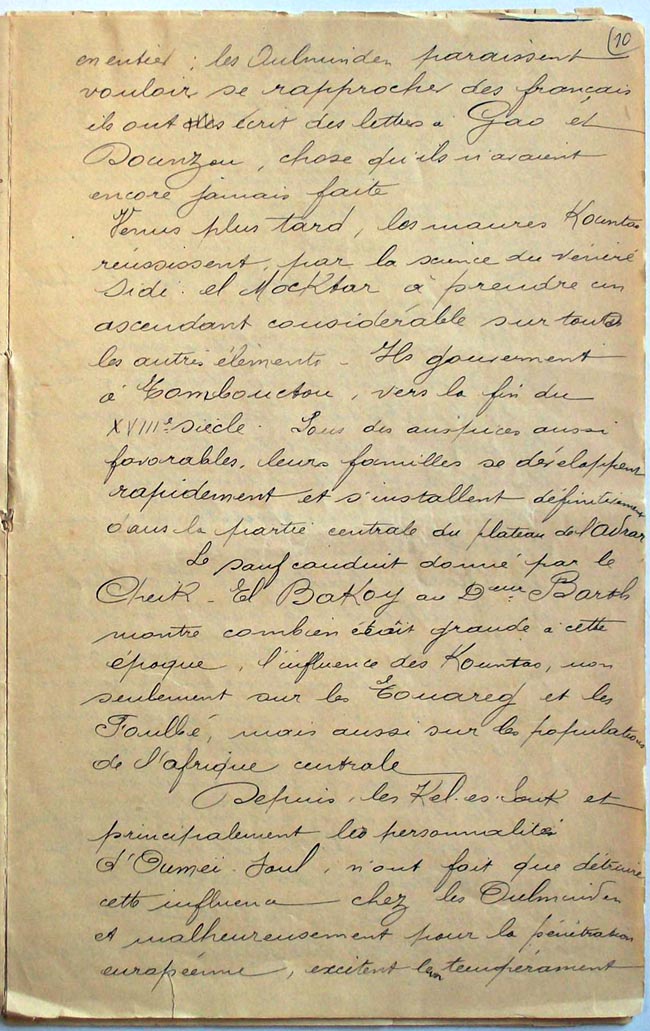 10
en entier ; les Oulminden paraissent
vouloir se rapprocher des français
ils ont écrit des lettres à Gao et
Dounzou, chose qu'ils n'avaient
encore jamais faite
Venus plus tard, les maures Kountas
réussissent, par la science du vénéré
Sidi. el Mocktar à prendre un
ascendant considérable sur tous
les autres éléments - Ils gouvernent
à Tombouctou, vers la fin du
XVIIIe siècle. Sous des auspices aussi
favorables, leurs familles se développent
rapidement et s'installent définitivement
dans la partie centrale du plateau de l'Adrar
Le sauf conduit donné par le
Cheik - El Bakoy au Dteur Barth
montre combien était grande à cette
époque, l'influence des Kountas, non
seulement sur les Touareg et les
Foulbé, mais aussi sur les populations
de l'afrique centrale
Depuis, les Kel. es. Souk et
principalement les personnalités
d'Oumeï. , n'ont fait que détruire
cette influence chez les Oulminden
et malheureusement pour la pénétration
européenne, excitent le tempérament